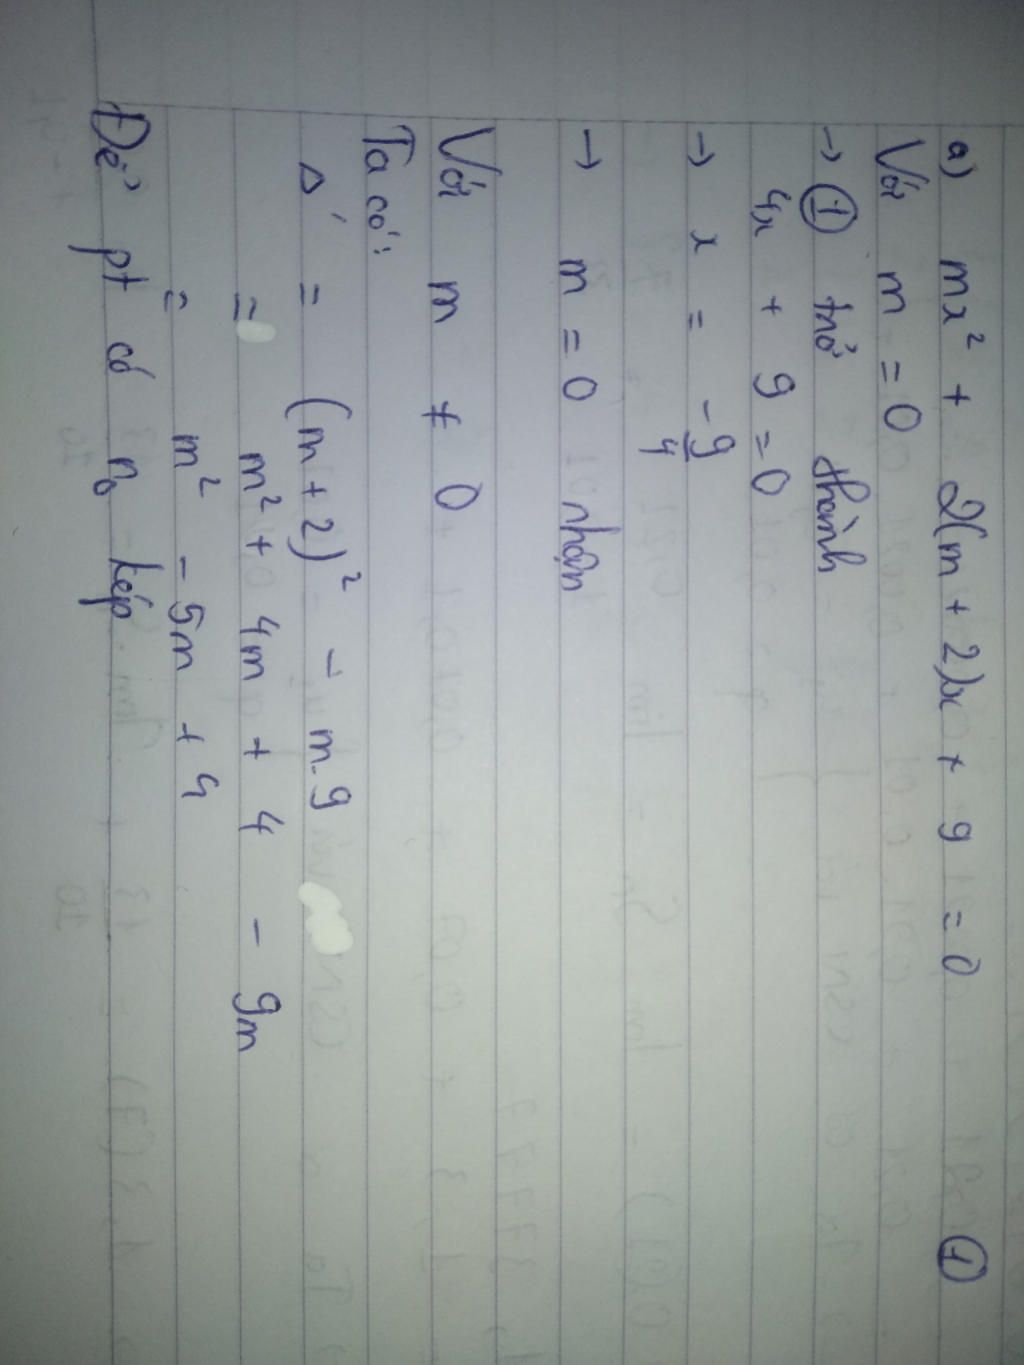 a) mx² + 2(m + 2)x + 9 = 0 ①
Với m = 0
→ ① trở thành
4x + 9 = 0
→ x = -9/4
→ m = 0 nhận
Với m ≠ 0
Ta có:
Δ' = (m + 2)² - m.9
= m² + 4m + 4 - 9m
= m² - 5m + 4
Để pt có n₀ kép